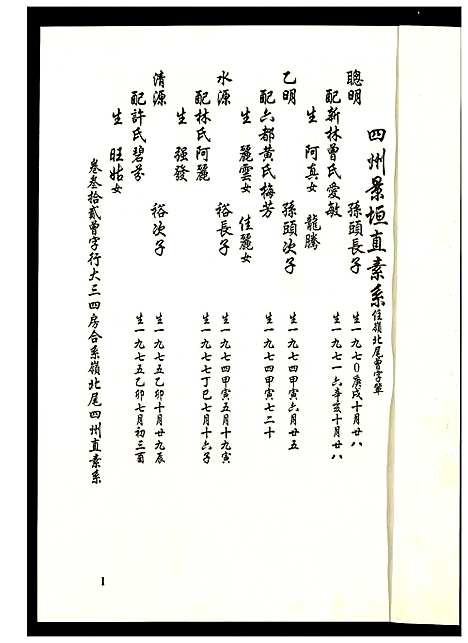 四州景垣直素系住嶺北尾曾字輩
聰明 孫頭長子 生一九七〇庚戌十月廿八
配新林曾氏愛敏 生一九七一六辛亥十月廿八
生 阿真女 龍騰
乙明 孫頭次子 生一九七四甲寅六月廿五
配六都黃氏梅芳 生一九七四甲寅七二十
生 麗雲女 佳麗女
水源 裕長子 生一九七四甲寅五月十九寅
配林氏阿麗 生一九七七丁巳七月十六子
生 强發
清源 裕次子 生一九七五乙卯十月廿九辰
配許氏碧芬 生一九七五乙卯七月初三酉
生 旺姑女
卷叁拾貳曾字行大三四房合系嶺北尾四州直素系
1